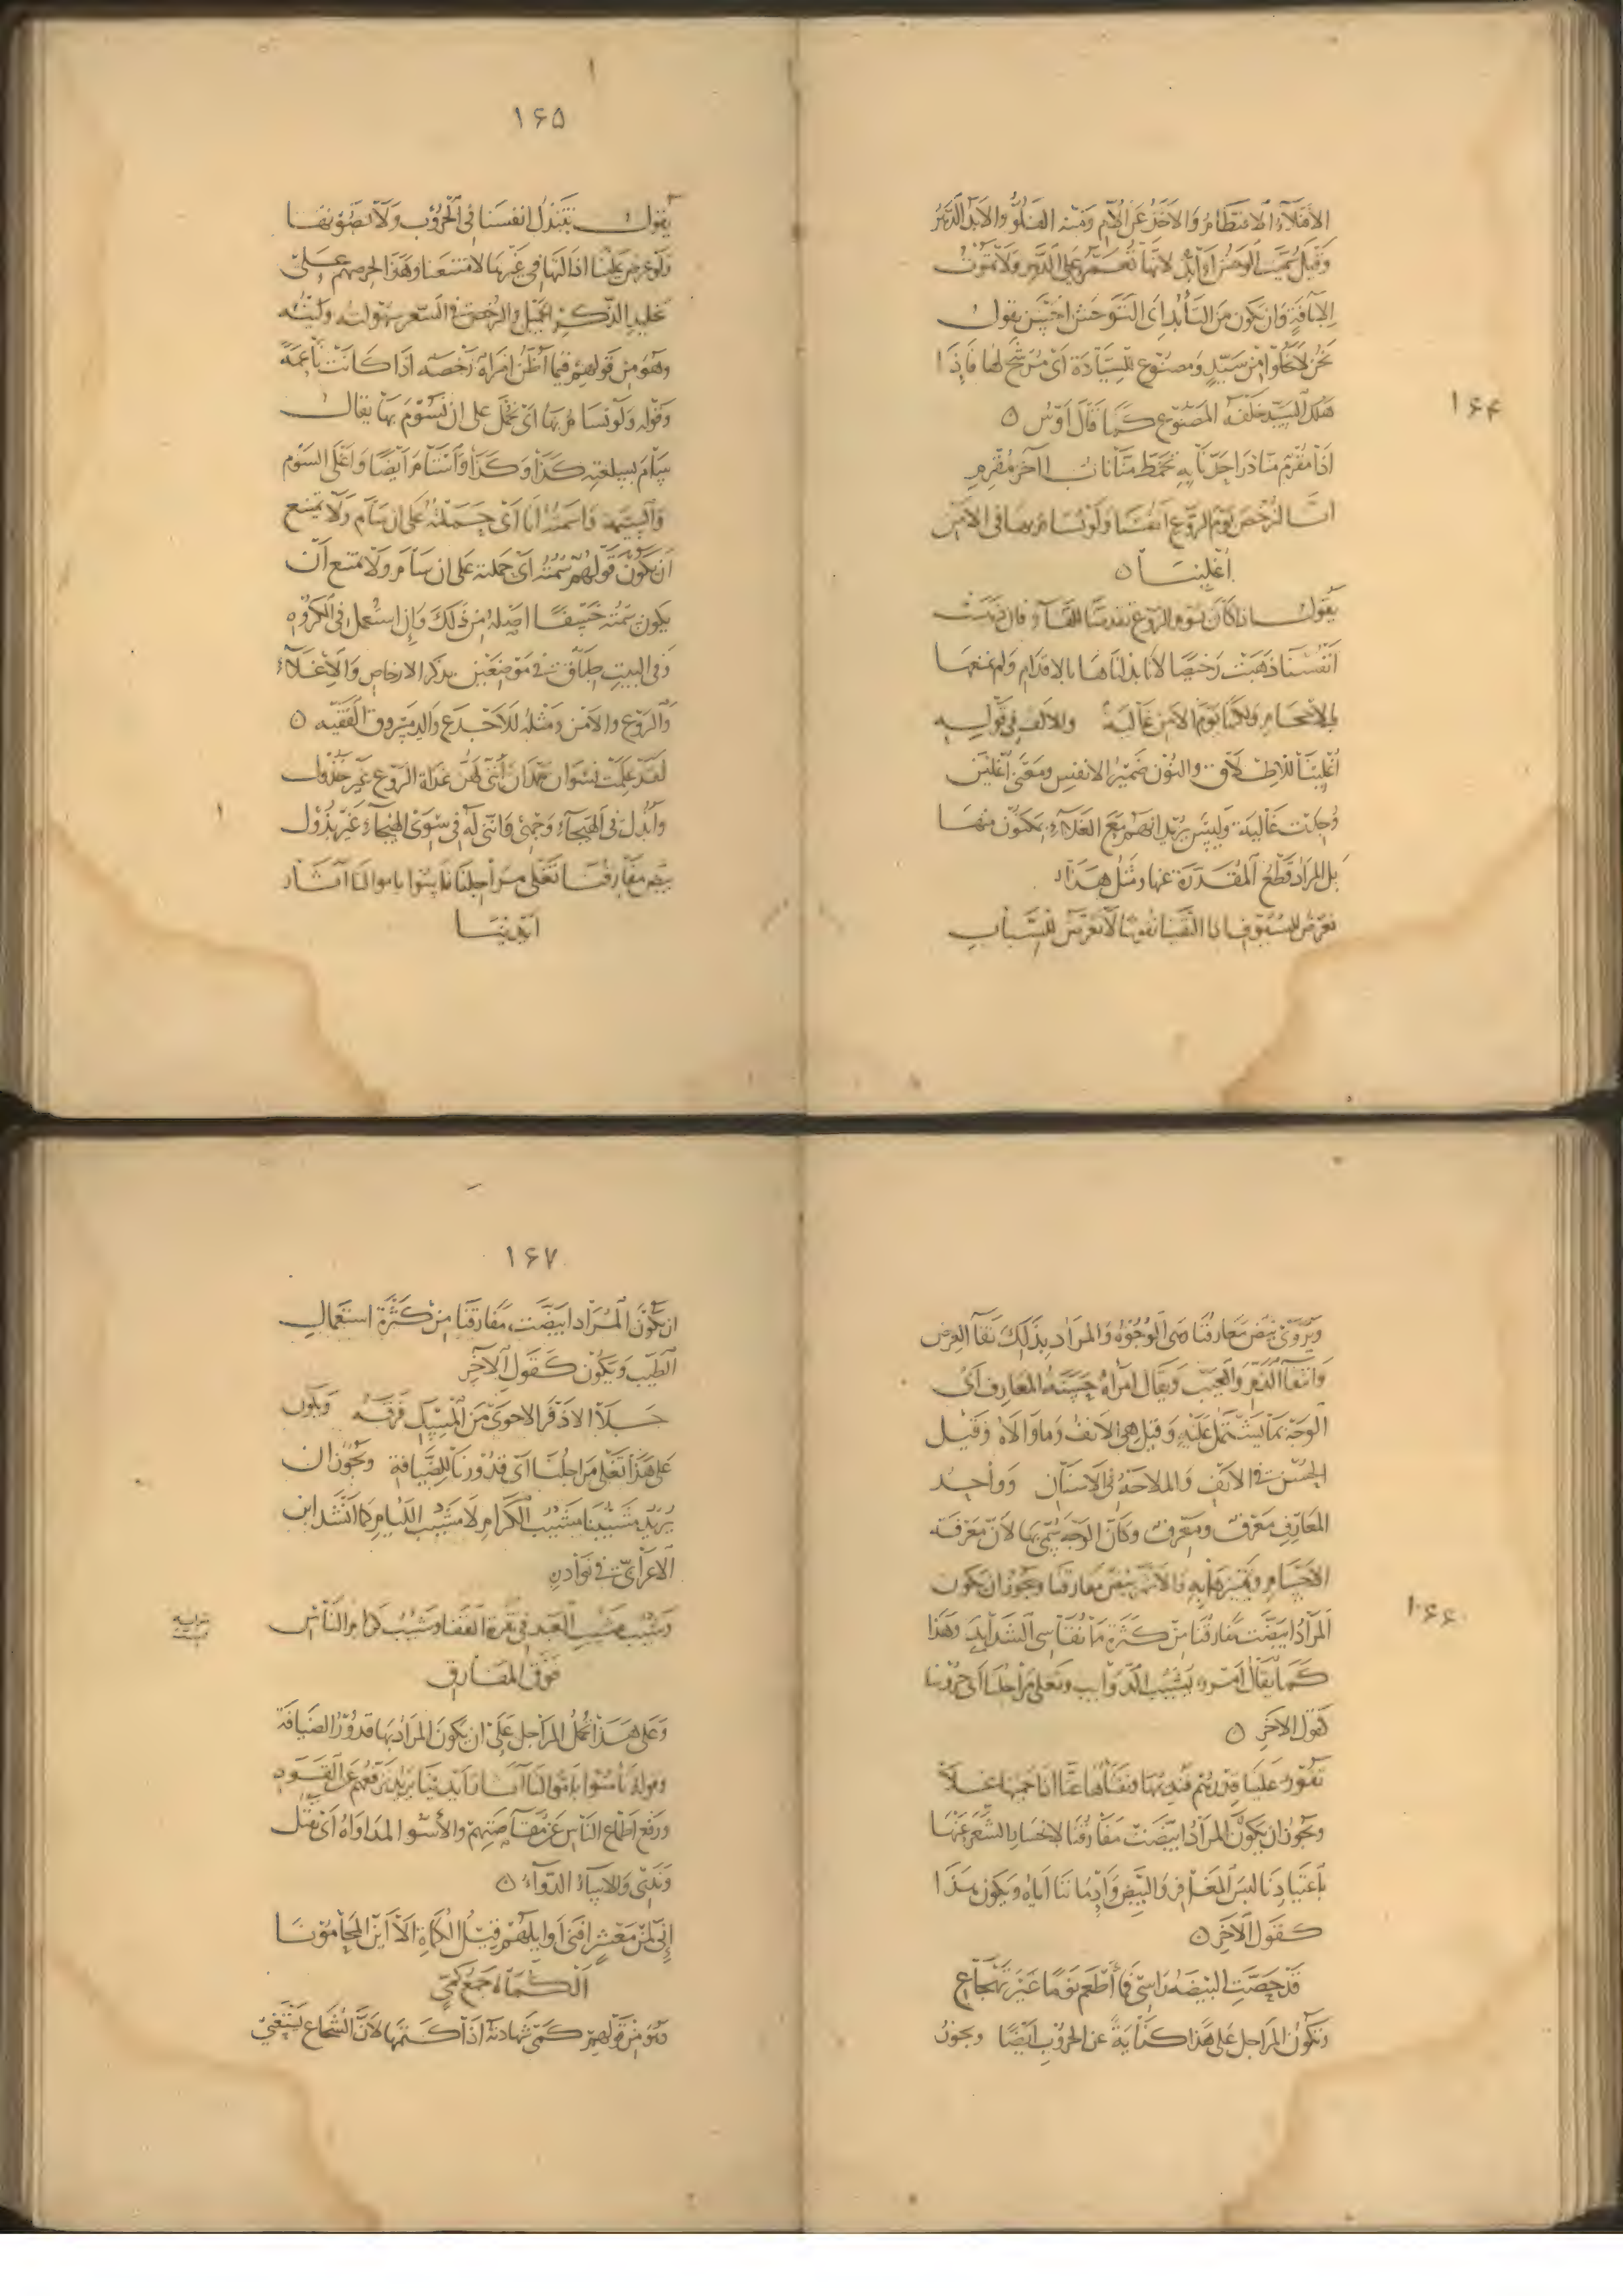 ۱۶۴
الافتلاء الافتطام والاخذ عن الام ومنه الفلو والابد الدهر
وقيل سميت الوحش اوابد لانها تعمر على الدهر ولا تموت
الا بآفة وان يكون من التأبد اى التوحش احسن يقول
نحن لا نخلوا من سيد ومصنوع للسيادة اى مرشح لها فاذا
هلك السيد خلفه المصنوع كما قال اوس
اذا مقرم منا ذرا حد نابه تخمط منا ناب آخر مقرم
انا لنرخص يوم الروع انفسنا ولو نسام بها فى الامن
اغلينا
يقول اذا كان يوم الروع تقدمنا للقاء فان ذهبت
انفسنا ذهبت رخيصا لانا بذلناها بالاقدام ولم نمنعها
بالاحجام ولكنها يوم الامن غالية والالف فى قوله
اغلينا للاطلاق والنون ضمير الانفس ومعنى اغلين
وجدت غالية وليس يريد انهم مع الغلاء يمكنون منها
بل المراد قطع المقدرة عنها ومثل هذا
نعرض للسيوف اذا التقينا نفوسا لا تعرض للسباب
۱۶۵
يقول نبتذل انفسنا فى الحروب ولا نصونها
ولو عرض علينا اذالتها فى غيرها لامتنعنا وهذا لحرصهم على
تخليد الذكر الجميل والرخص فى السعر سهولته ولينه
وهو من قولهم فيما اظن امرأة رخصة اذا كانت ناعمة
وقوله ولو نسام بها اى نحمل على ان نسوم بها يقال
سام بسلعته كذا وكذا واستام ايضا واغلى السوم
والسيمة واسمته انا اى حملته على ان سام ولا يمتنع
ان يكون قولهم سمته اى حملته على ان سام ولا يمتنع ان
يكون سمته خسفا اصله من ذلك وان استعمل فى المكروه
وفى البيت طباق فى موضعين بذكر الارخاص والاغلاء
والروع والامن ومثله للاجدع والد مسروق الفقيه
لقد علمت نسوان همدان اننى لهن غداة الروع غير خذول
وابذل فى الهيجاء وجهى واننى له فى سوى الهيجاء غير بذول
بيض مفارقنا تغلى مراجلنا نأسوا باموالنا آثار
ايدينا
۱۶۶
ويروى بيض معارفنا وهى الوجوه والمراد بذلك نقاء العرض
وانتفاء الذم والعيب ويقال امرأة حسنة المعارف اى
الوجه بما يشتمل عليه وقيل هى الانف وما والاه وقيل
الحسن فى الانف والملاحة فى الاسنان وواحد
المعارف معرف ومعرف وكان الوجه سمى بها لان معرفة
الاجسام وتميزها به والاشهر بيض مفارقنا ويجوز ان يكون
المراد ابيضت مفارقنا من كثرة ما نقاسى الشدايد وهذا
كما يقال امر يشيب الذوايب وتغلى مراجلنا اى حروبنا
كقول الاخر
تفور علينا قدرهم فنديمها ونفثأها عنا اذا حميها غلا
ويجوز ان يكون المراد ابيضت مفارقنا لانحسار الشعر عنها
باعتيادنا لبس المغافر والبيض وادماننا اياه ويكون هذا
كقول الاخر
قد حصت البيضة راسى فما اطعم نوما غير تهجاع
وتكون المراجل على هذا كناية عن الحروب ايضا ويجوز
۱۶۷
ان يكون المراد ابيضت مفارقنا من كثرة استعمال
الطيب ويكون كقول الآخر
جلا الاذفر الاحوى من المسك فرقه ويكون
على هذا تغلى مراجلنا اى قدورنا للضيافة ويجوز ان
يريد مشيبنا مشيب الكرام لا مشيب اللئام كما انشد ابن
الاعرابى فى نوادره
وشبت مشيب العبد فى نقرة القفا وشيب كرام الناس
فوق المفارق
وعلى هذا تحمل المراجل على ان يكون المراد بها قدور الضيافة
وقوله نأسوا باموالنا آثار ايدينا يريد ترفعهم عن القود
ورفع اطماع الناس عن مقاصتهم والأسو المداواة اى نقتل
وندى والاساء الدواء
انى لمن معشر افنى اوايلهم قيل الكماة الا اين المحامونا
الكماة جمع كمى
وهو من قولهم كمى شهادته اذا كتمها لان الشجاع يستغنى